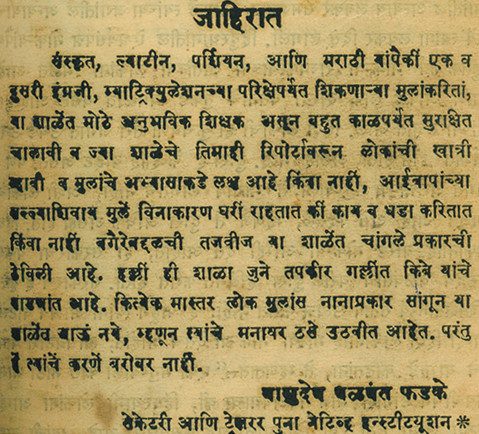 जाहिरात
संस्कृत, ल्याटीन, पर्शियन, आणि मराठी यांपैकीं एक व
दुसरी इंग्रजी, म्याट्रिक्युलेशनच्या परिक्षेपर्यंत शिकणाऱ्या मुलांकरितां,
या शाळेंत मोठे अनुभविक शिक्षक असून बहुत काळपर्यंत सुरक्षित
चालावी व ज्या शाळेचे तिमाही रिपोर्टावरून लोकांची खात्री
व्हावी व मुलांचे अभ्यासाकडे लक्ष आहे किंवा नाहीं, आईबापांच्या
सल्ल्याशिवाय मुलें विनाकारण घरीं राहतात कीं काय व धडा करितात
किंवा नाहीं वगैरेबद्दलची तजवीज या शाळेंत चांगले प्रकारची
ठेविली आहे. हल्लीं ही शाळा जुने तपकीर गल्लींत किबे यांचे
वाड्यांत आहे. कित्येक मास्तर लोक मुलांस नानाप्रकार सांगून या
शाळेंत जाऊं नये, म्हणून त्यांचे मनावर ठसे उठवीत आहेत. परंतु
हें त्यांचें करणें बरोबर नाहीं.
वासुदेव बळवंत फडके
सेक्रेटरी आणि ट्रेझरर पुना नेटिव्ह इन्स्टीट्यूशन *